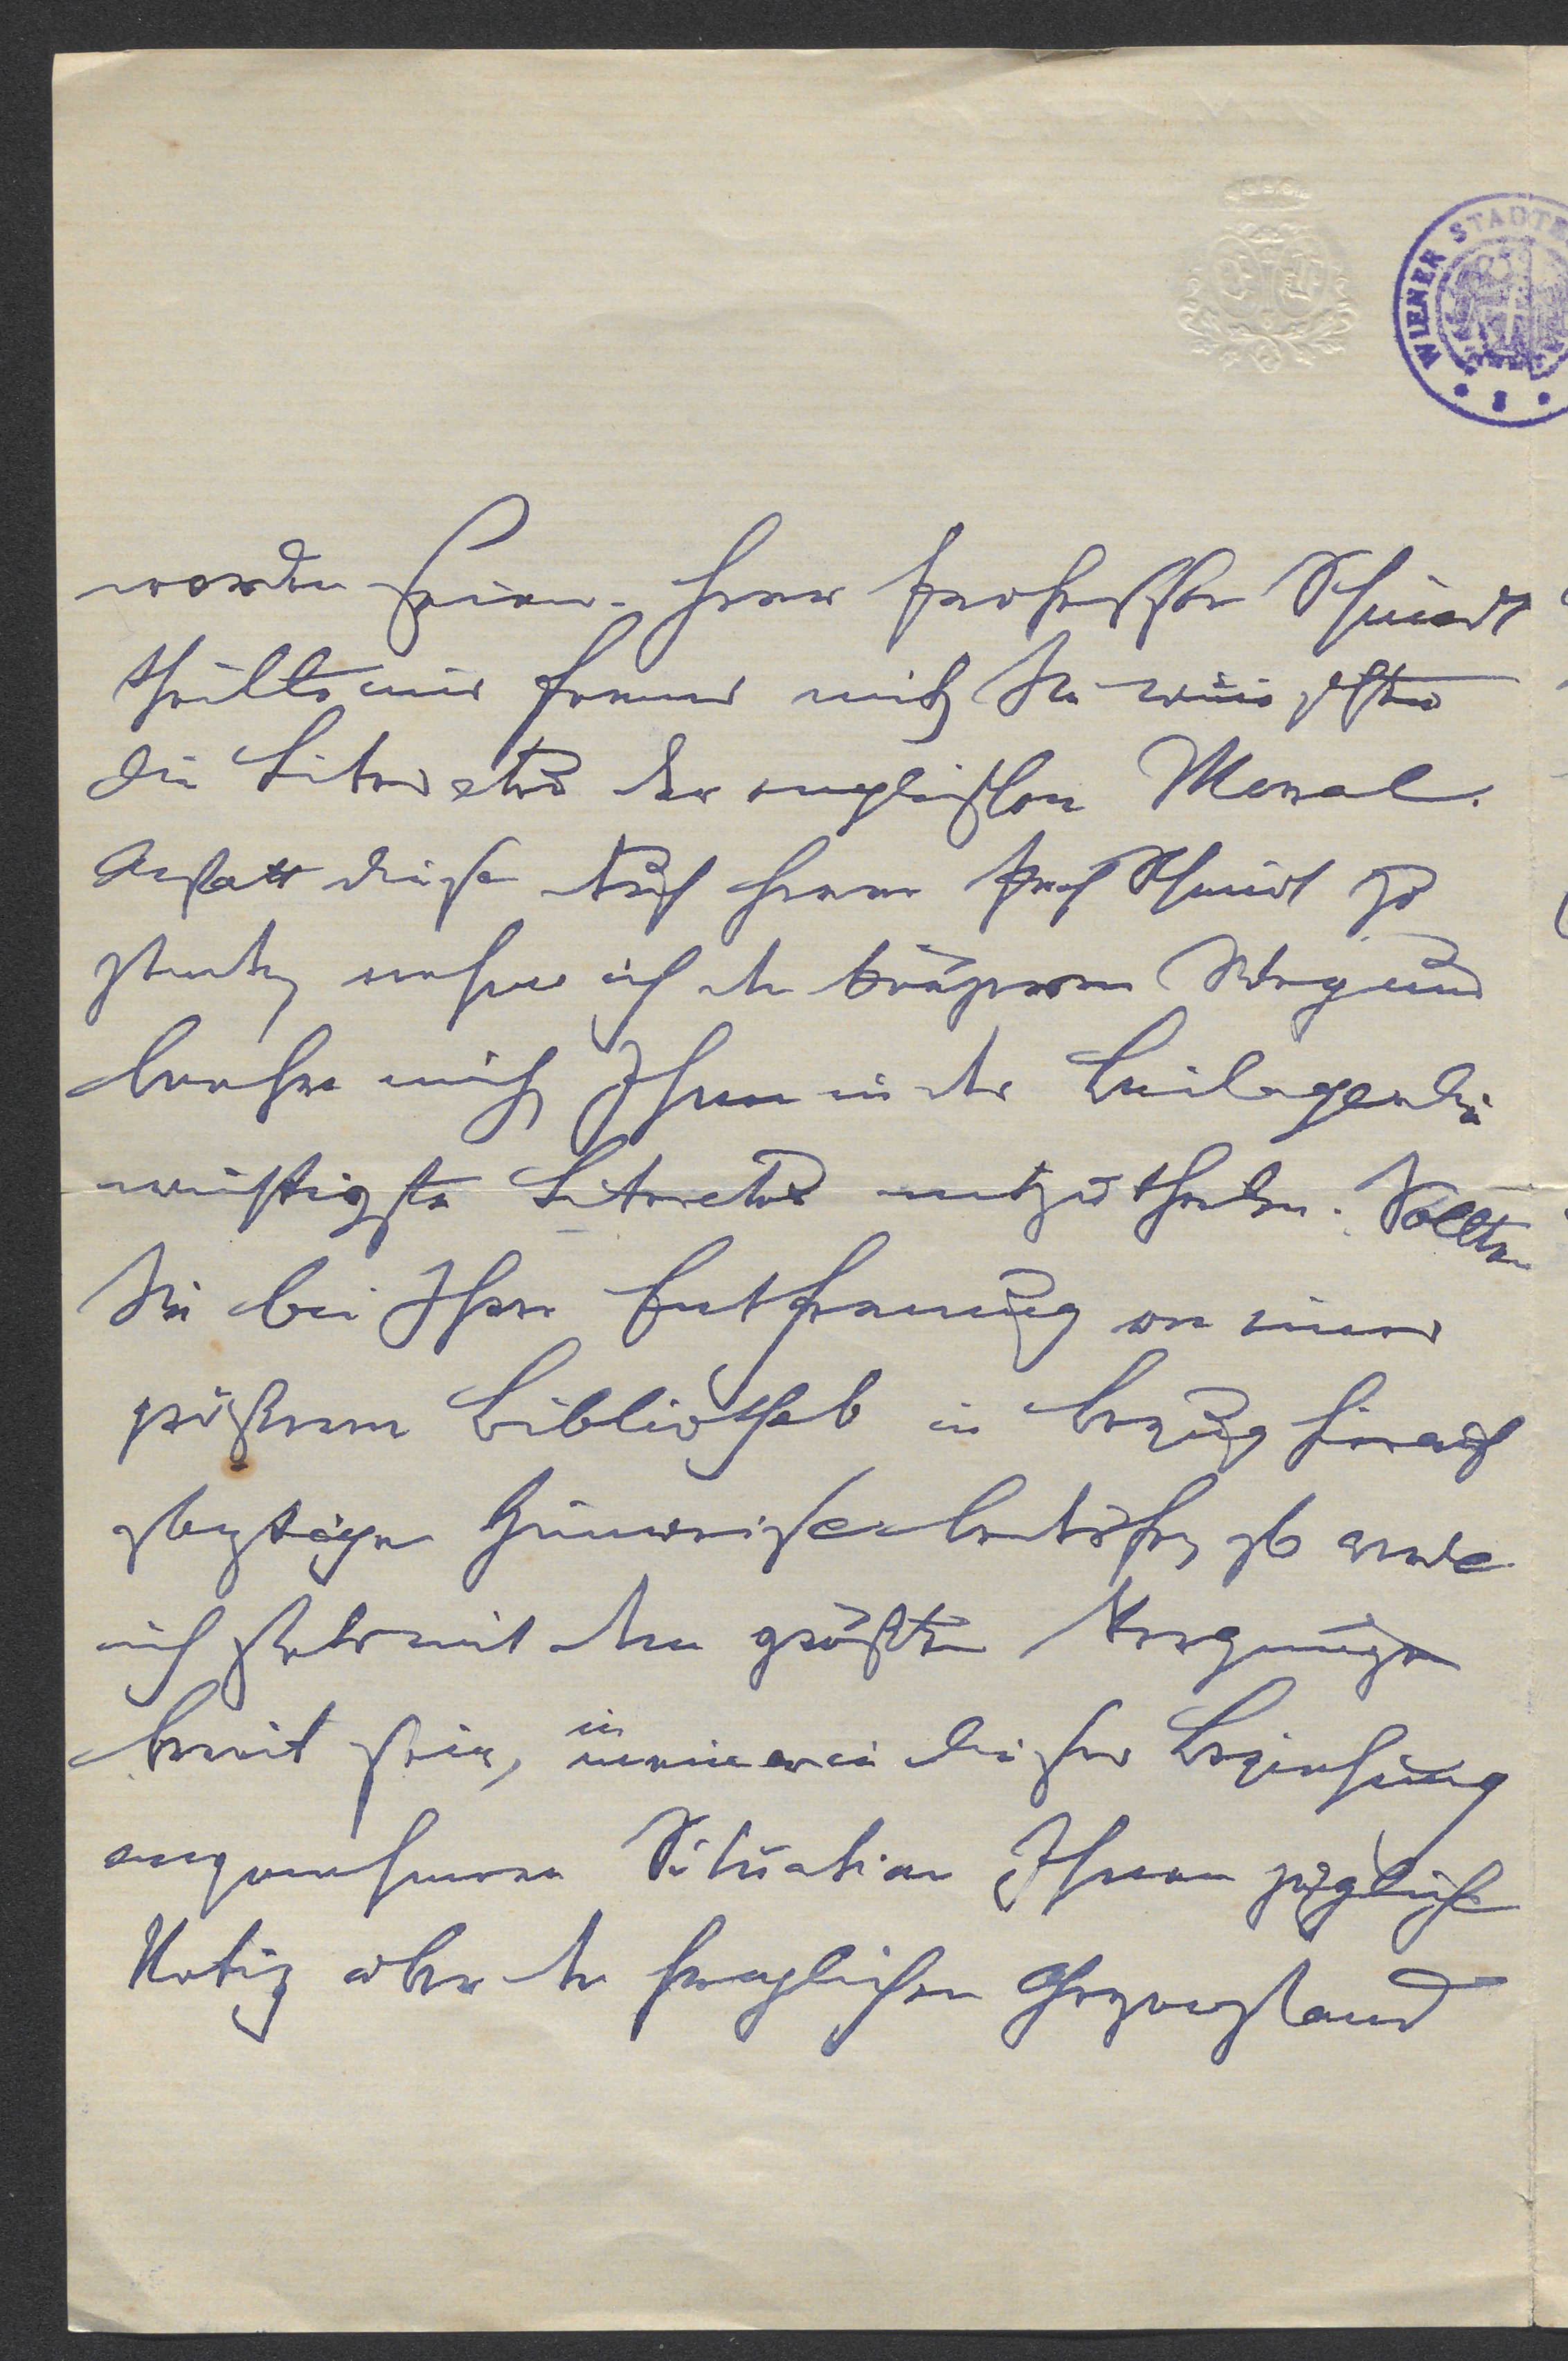 WIENER STADTB
worden seien. Herr Professor Schmidt
theilte mir ferner mit, Sie wünschten
die Literatur der englischen Moral.
Anstatt diese durch Herrn Prof Schmidt zu
senden, nehme ich den kürzeren Weg und
beehre mich, Ihnen in der Beilage die
wichtigste Literatur mitzutheilen. Sollten
Sie bei Ihrer Entfernung von einer
größeren Bibliothek in Bezug hierauf
Hinweise bedürfen, so werde
ich stets mit dem größten Vergnügen
bereit sein, in meiner in dieser Beziehung
angenehmeren Situation Ihnen jegliche
Notiz über den fraglichen Gegenstand